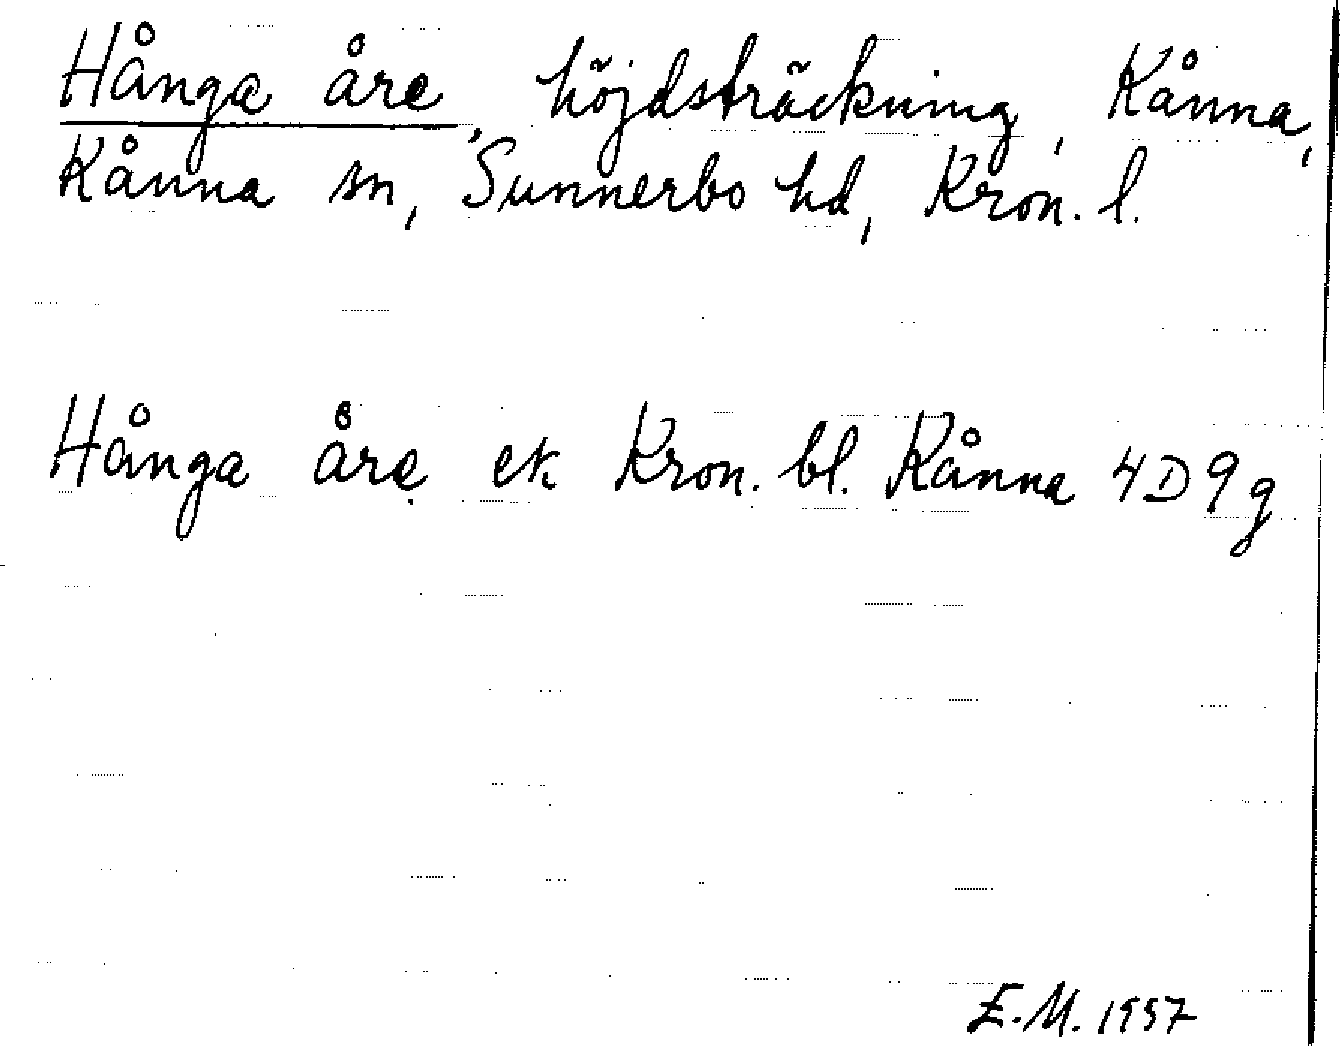 Hånga åre, höjdsträckning, Kånna,
Kånna sn, Sunnerbo hd, Kron. l.
Hånga åre ek Kron. bl. Kånna 4D9g
E.M. 1957